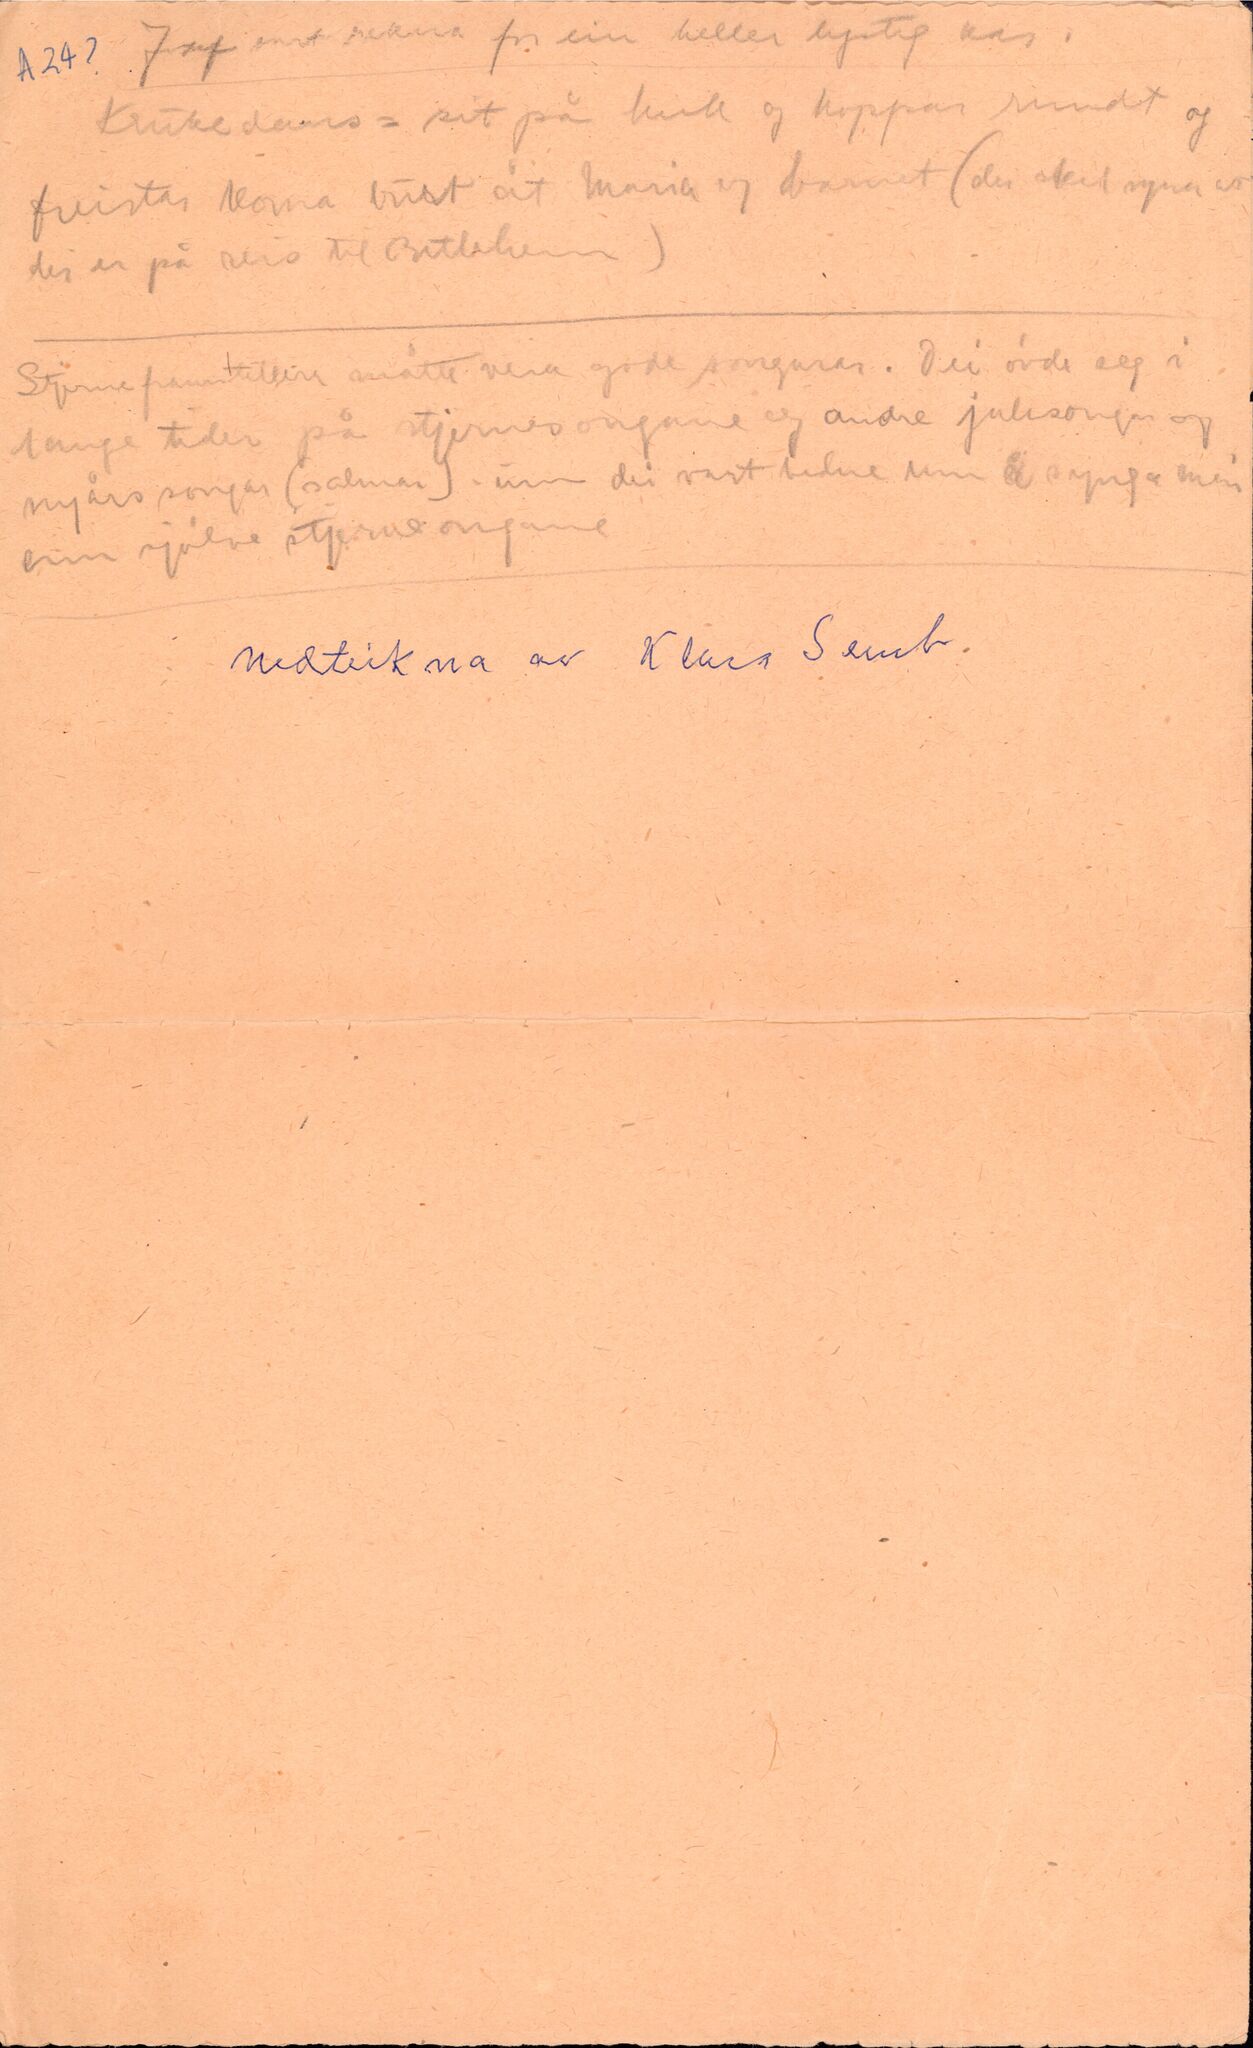 A 24?
Josef vart rekna for ein heller lystig kar.
Krukedans = sit på huk og hoppar rundt og
freistar koma burt åt Maria og barnet (dei skal syna at
dei er på reis til Betlehem)
Stjerneframstellira måtte vera gode songarar. Dei øvde seg i
lange tider på stjernesongane og andre julesongar og
nyårssongar (salmar) um dei vart bedne um å syngja meir
enn sjølve stjernesongane
Nedteikna av Klara Semb.